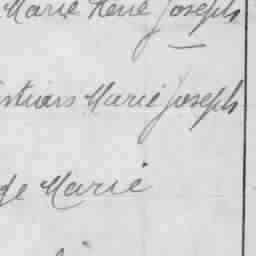 Marie René Joseph
Marie Joseph
de Marie